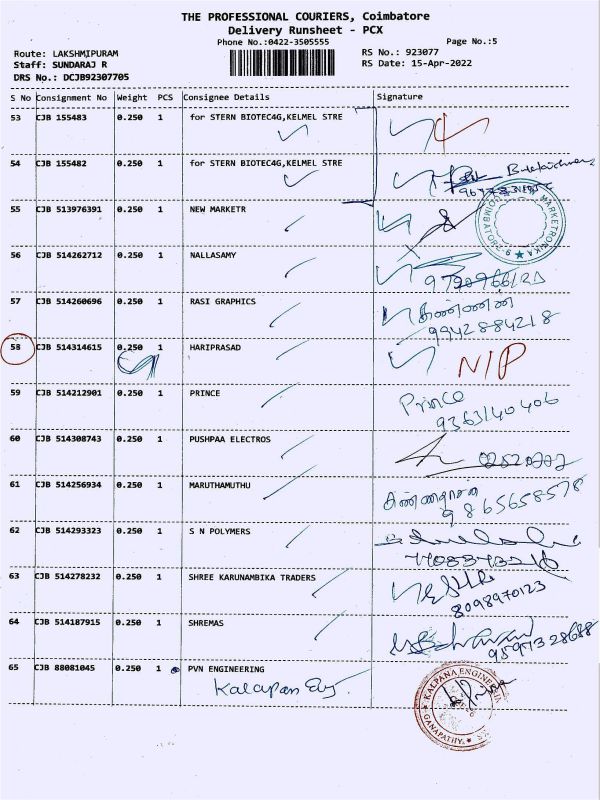 THE PROFESSIONAL COURIERS, Coimbatore
Delivery Runsheet - PCX
Phone No.:0422-3505555
Page No.:5
Route: LAKSHMIPURAM
RS No.: 923077
Staff: SUNDARAJ R
RS Date: 15-Apr-2022
DRS No.: DCJB92307705
S No Consignment No Weight PCS Consignee Details Signature
53 CJB 155483 0.250 1 for STERN BIOTEC4G,KELMEL STRE
54 CJB 155482 0.250 1 for STERN BIOTEC4G,KELMEL STRE
55 CJB 513976391 0.250 1 NEW MARKETR
56 CJB 514262712 0.250 1 NALLASAMY
57 CJB 514260696 0.250 1 RASI GRAPHICS கண்ணன்
9942884218
58 CJB 514314615 0.250 1 HARIPRASAD N/P
59 CJB 514212901 0.250 1 PRINCE Prince
9363140406
60 CJB 514308743 0.250 1 PUSHPAA ELECTROS
61 CJB 514256934 0.250 1 MARUTHAMUTHU
9865658578
62 CJB 514293323 0.250 1 S N POLYMERS
63 CJB 514278232 0.250 1 SHREE KARUNAMBIKA TRADERS
8098970123
64 CJB 514187915 0.250 1 SHREMAS
9597328688
65 CJB 88081045 0.250 1 PVN ENGINEERING
KALPANA ENGINEERING
GANAPATHY